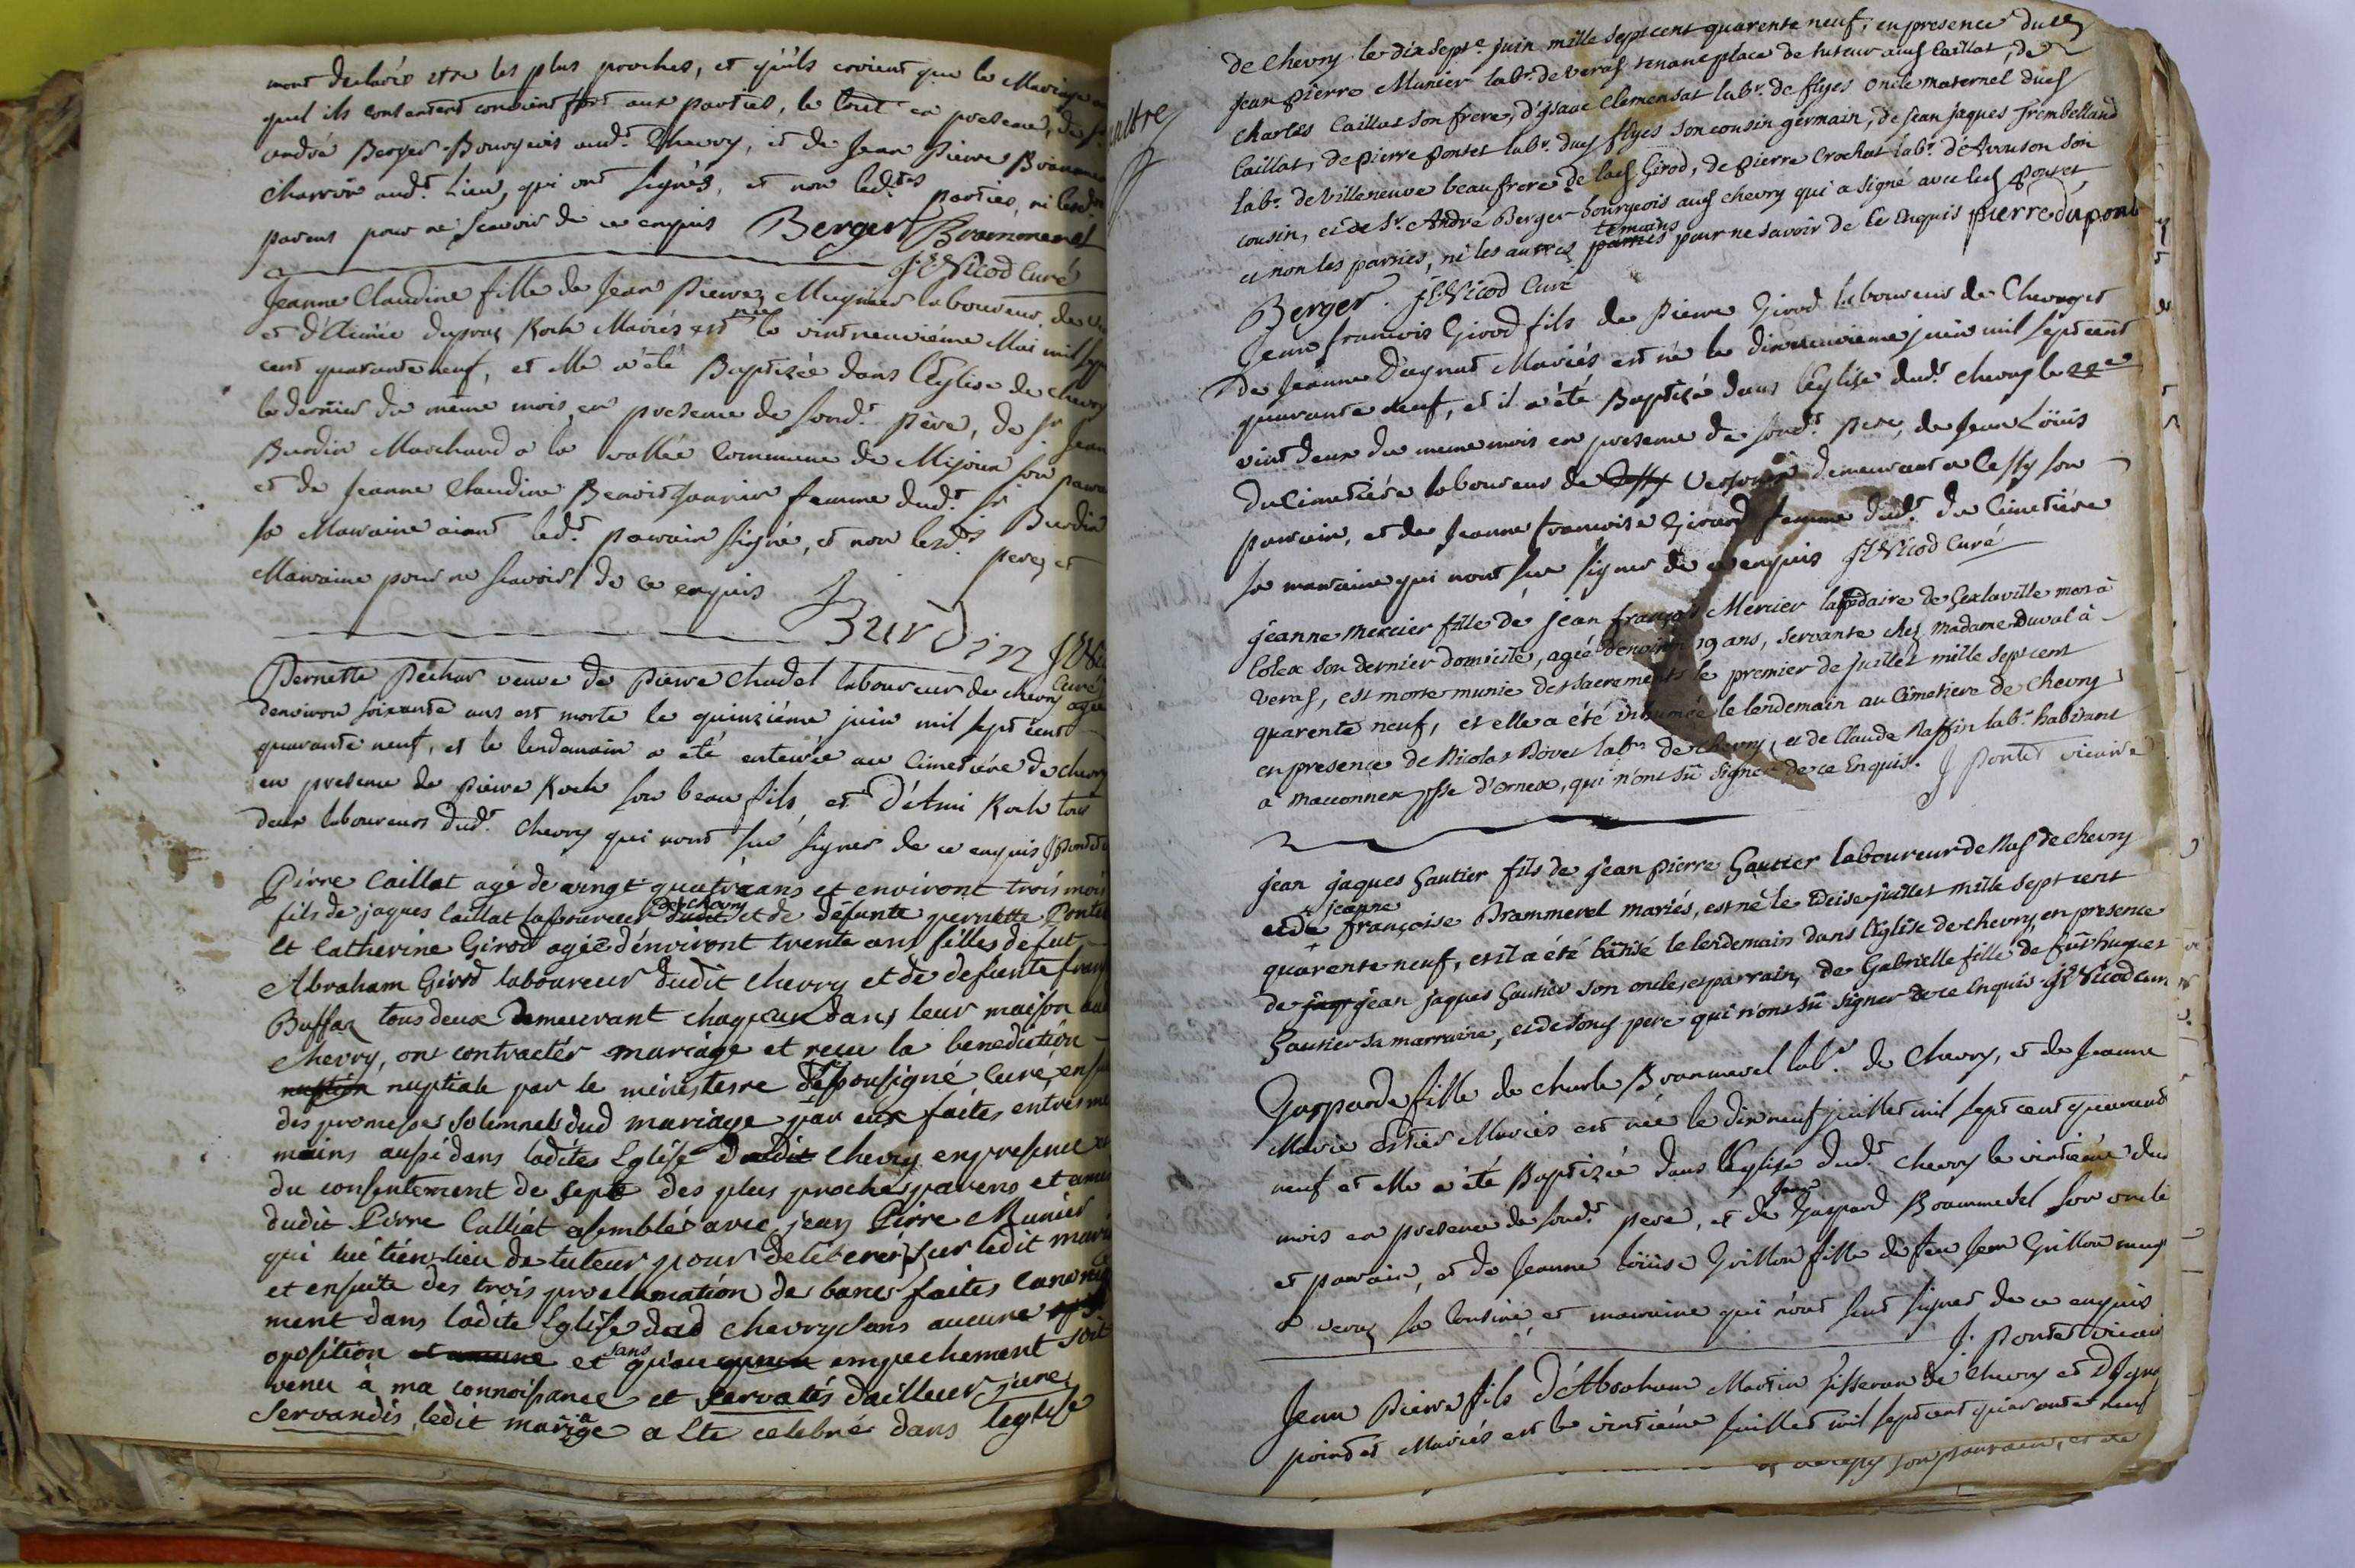 mont declarés etre les plus proches, et qu'ils croient que le Mariage
quel ils consentent convient fort aux parties, le tout en presence, de Sr
andré Berger Bourgeois aud.t Chevry, et de Jean Pierre
Charron aud.t Lieu, qui ont signés, et non led.tes parties, ni lesd.
parens pour ne scavoir de ce enquis Berger Brammerel
J:C: Nicod Curé
Jeanne Claudine fille de Jean Pierre Mugnier laboureur, de
et d'Aimée Roch Mariés est née le vintneuviéme Mai mil sept
cent quarante neuf, et elle a été Baptizée dans l'Eglise de Chevry
le dernier du même mois en presence de sond.t Père, de Sr Jean
Burdin Marchand a la vallée Commune de Mijoux son
et de Jeanne Claudine femme dud.t Sr Burdin
sa Maraine aiant led.t parain signé, et non lesd.ts pere, et
Maraine pour ne scavoir de ce enquis
Burdin
Curé
Pernette Pechar veuve de Pierre Chadel laboureur de chevry agée
denviron soixante ans est morte le quinziéme juin mil sept cent
quarante neuf, et le lendemain a été enterrée au Cimetiére de chevry
en presence de Pierre Roch son beau fils, et d'Ami Roch tous
deux laboureurs dud.t Chevry qui n'ont sçu signer de ce enquis
Pirre Caillat agé de vingt quatre ans et environt trois mois
fils de jaques Caillat laboureur de chevry dudit et de defunte pernette Pontet
et Catherine Girod agée d'environt trente ans filles defut
Abraham Girod laboureur dudit chevry et de defunte
Buffaz tous deux demeurant chaqcun dans leur maison
chevry, ont contractés mariage et recu la benediction
nuptiale par le ministere soussigné Curé,
des promesses solemnels dud mariage par eux faites entre
mains aussi dans ladites Eglise dudit Chevry en presence
du consentement de sept des plus proches parens et amis
dudit Pirre Calliat asemblés avec jean Pirre Munier
qui lui tien lieu de tuteur pour deliberér sur ledit
et ensuite des trois proclamation de bancs faites
ment dans ladite Eglise dud chevry sans aucune
oposition et sans qu'aucun empechement soit
venu à ma connoissance et servatis dailleur jure
servandis, ledit mariage a Ete celebré dans leglise
de Chevry le dix sept.e juin mille septcent quarente neuf, en presence dud
jean pierre Munier lab.r de veras tenant place de tuteur aud Caillat, de
Charles Caillat son frere, d'isaac Clemensat lab.r de flyes oncle maternel dud
Caillat, de pierre pontet lab.r dud flyes son cousin germain, de jean jaques Trembelland
lab.r de Villeneuve beaufrere de lad Girod, de pierre Crochat lab.r d'Avouson son
cousin, et de Sr. André Berger bourgeois aud chevry qui a signé avec led Pontet,
et non les parties, ni les autres temoins pour ne savoir de ce enquis pierre dupont
Berger. J:C: Nicod Curé
Jean francois Girod fils de Pierre Girod laboureur de Chevry et
de Jeanne Dagnat Mariés est né le dixneuviéme juin mil sept cent
quarante neuf, et il a été Baptizé dans l'Eglise dud.t chevry le 22e
vint deux du meme mois en presence de sond.t Pere, de Jean Loüis
du Cimetiére laboureur de Cessy demeurant a Cessy son
parain, et de Jeanne francoise Girard femme dud.t du Cimetiére
sa maraine qui n'ont sçu signer de ce enquis J:C: Nicod Curé
jeanne mercier fille de jean françois Mercier lapidaire de Gexlaville mort à
Colex son dernier domicile, agée d'environ 19 ans, servante chez madame Duval à
veras, est morte munie des sacrements le premier de Juillet mille sept cent
quarente neuf, et elle a été inhumée le lendemain au Cimetiere de Chevry
en presence de Nicolas Rovet lab.r de chevry, et de Claude Raffin lab.r habitant
à maconnex psse d'ornex, qui n'ont sû signer de ce Enquis. J Pontet vicaire
jean jaques Gautier fils de jean pierre Gautier laboureur de Nas de chevry
et de jeanne françoise Brammerel mariés, est né le treise juillet mille sept cent
quarente neuf, et il a été batisé le lendemain dans l'Eglise de chevry, en presence
de jean jaques Gautier son oncle, et parrain, de Gabrielle fille de fût hugues
Gautier sa marraine, et de sond pere qui n'ont sû signer de ce Enquis J:C: Nicod cur
Gasparde fille de Charle Brammerel lab.r de Chevry, et de Jeanne
Marie Mariés est née le dixneuf juillet mil sept cent quarante
neuf et elle a été Baptizée dans l'Eglise dud.t Chevry le vintiéme dud
mois en presence de sond.t pere, et de Jean Gaspard Brammerel son oncle
et parain, et de Jeanne loüise Grillon fille de feu Jean Grillon
a veraz sa Cousine et maraine qui n'ont sçut signer de ce enquis
J. Pontet vicair
Jean Pierre fils d'Abraham Martin tisseran de Chevry et
Mariés est le vintiéme Juillet mil sept cent quarante neuf
son parrain, et de